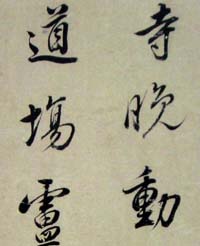 寺晚動
道場